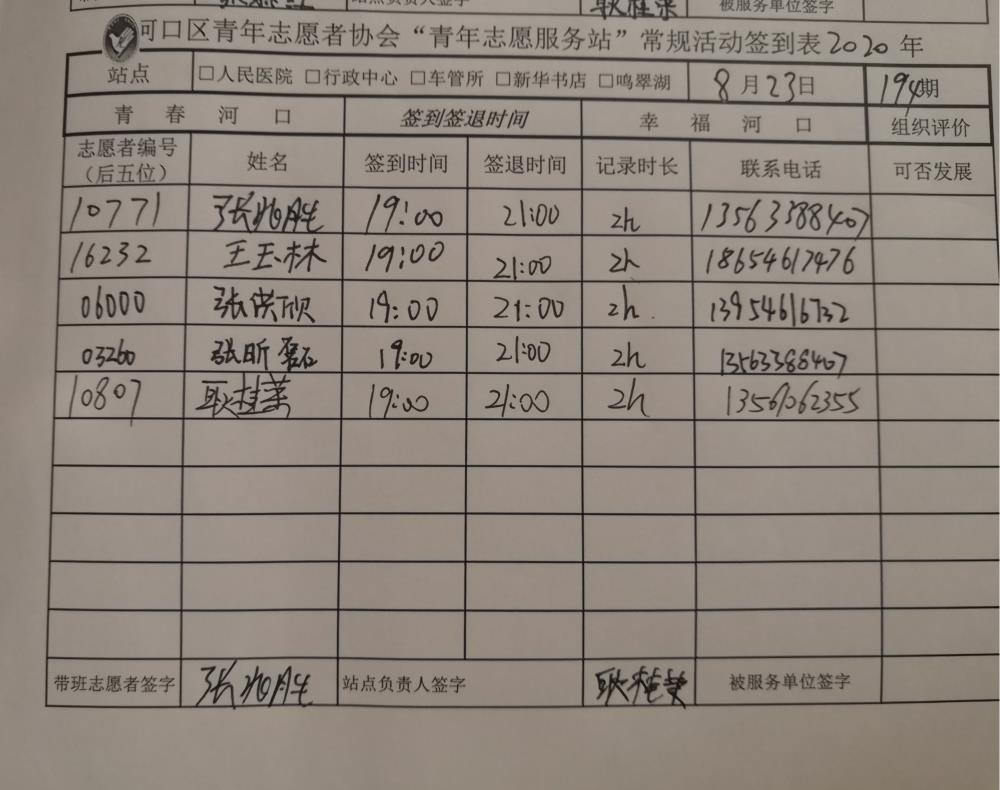 站点负责人签字 耿桂荣 被服务单位签字
河口区青年志愿者协会“青年志愿服务站”常规活动签到表2020年
站点 □人民医院 □行政中心 □车管所 □新华书店 □鸣翠湖 8月23日 194期
青春河口 签到签退时间 幸福河口 组织评价
志愿者编号
(后五位) 姓名 签到时间 签退时间 记录时长 联系电话 可否发展
10771 张兆胜 19:00 21:00 2h 13563388407
16232 王玉林 19:00 21:00 2h 18654617476
06000 张洪欣 19:00 21:00 2h 13954616732
03260 张昕磊 19:00 21:00 2h 13563388407
10807 耿桂荣 19:00 21:00 2h 13561062355
带班志愿者签字 张兆胜 站点负责人签字 耿桂荣 被服务单位签字